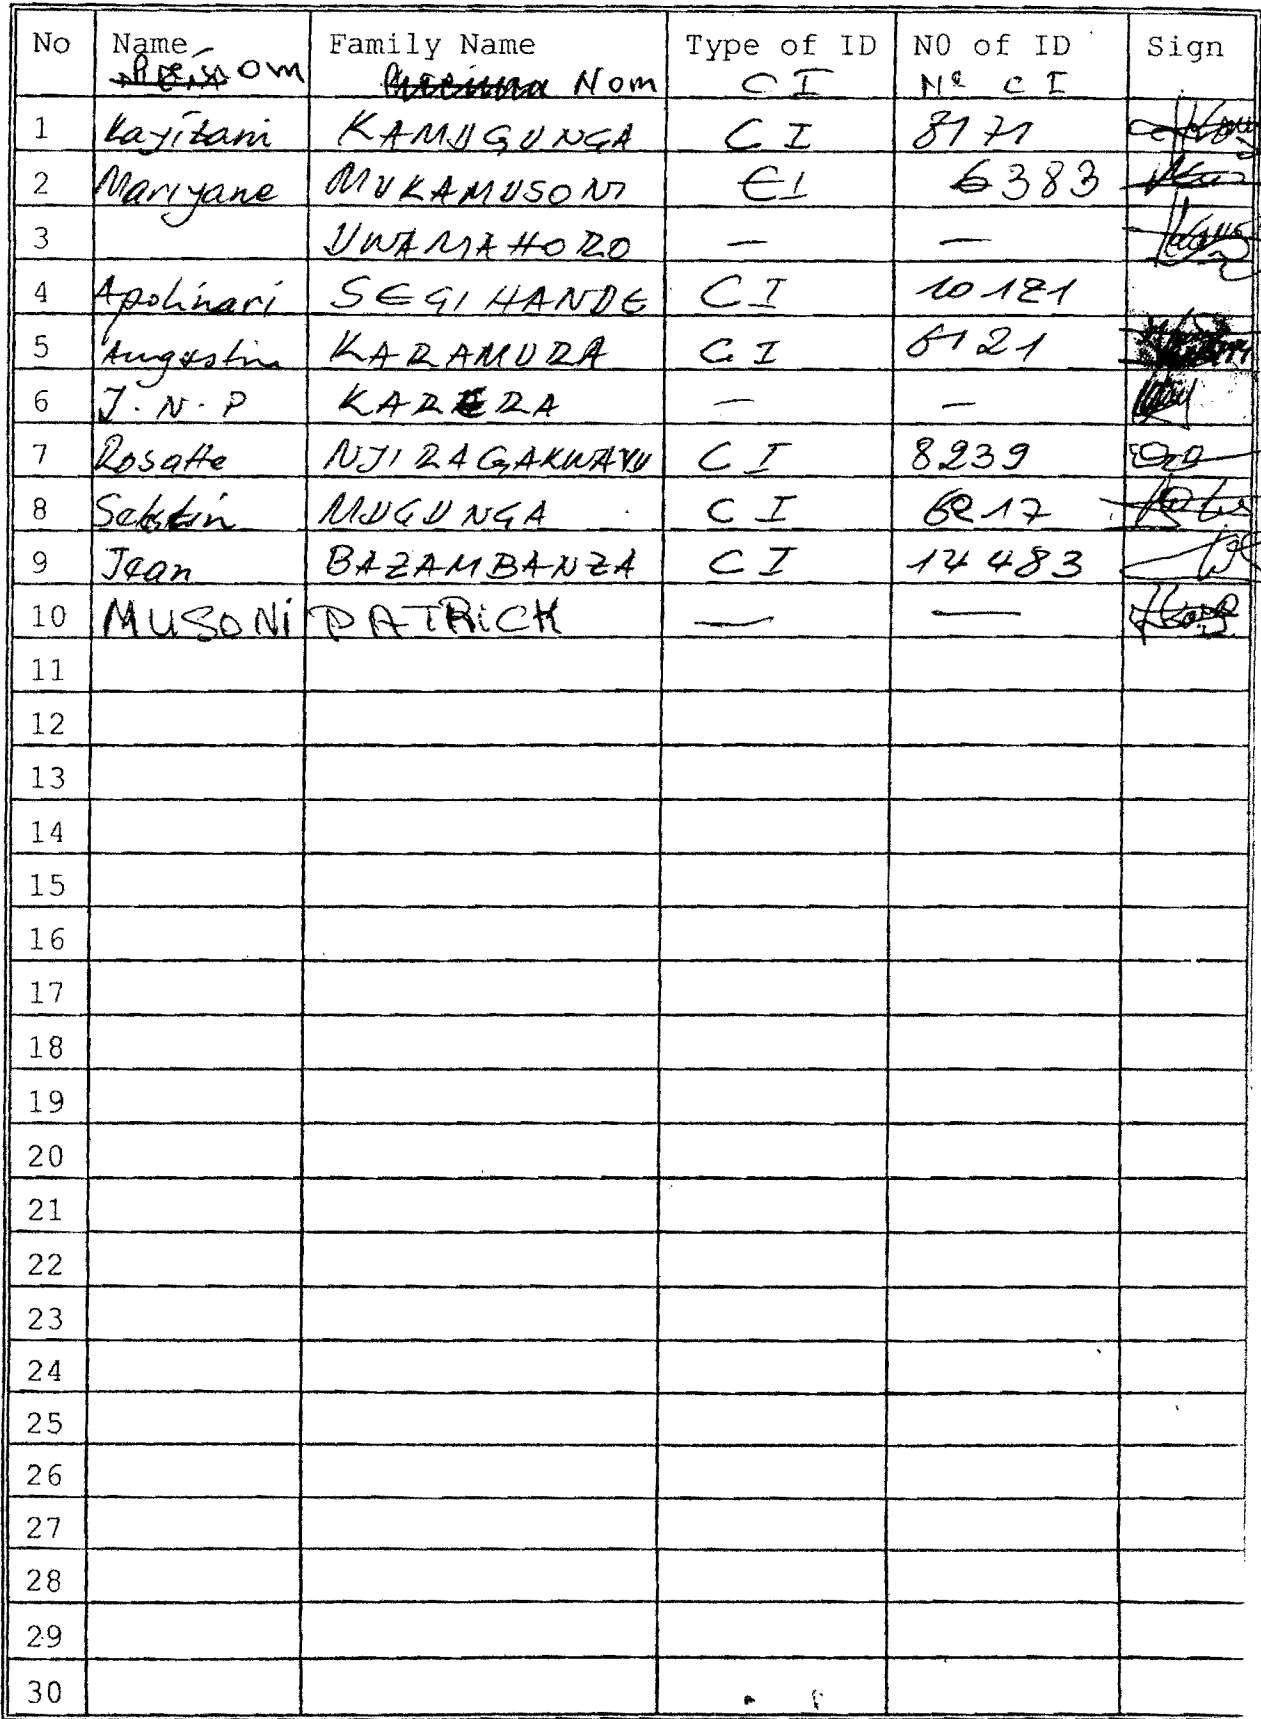 No Name Family Name Type of ID N0 of ID Sign
Nom C I Nº C I
1 Kayitani KAMUGUNGA C I 8171
2 Mariyane MUKAMUSONI CI 6383
3 UWAMAHORO — —
4 Apolinari SEGIHANDE C I 10121
5 Augustin KARAMURA C I 6121
6 J.N.P KARERA — —
7 Rosatte NJIRAGAKWAVU C I 8239
8 MUGUNGA C I 6217
9 Jean BAZAMBANZA C I 14483
10 MUSONI PATRICK — —
11
12
13
14
15
16
17
18
19
20
21
22
23
24
25
26
27
28
29
30